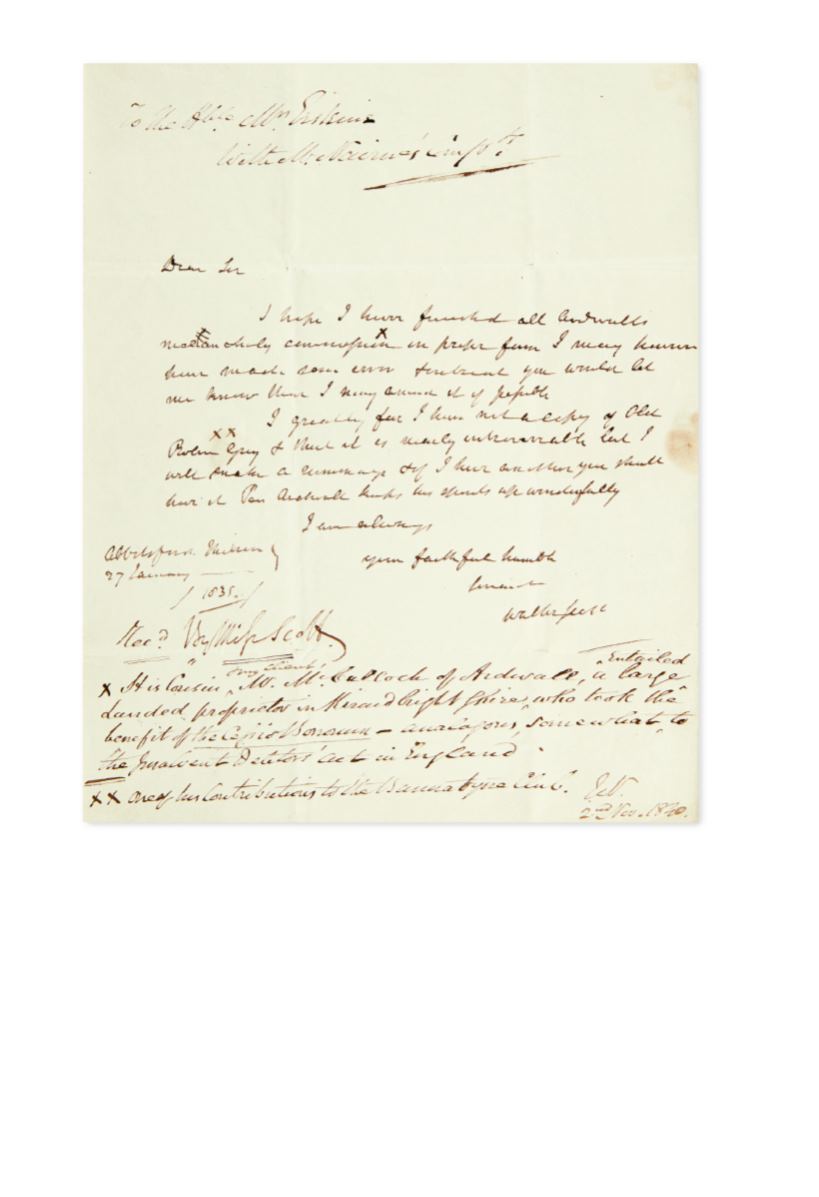 To the Hble. Mrs Erskine
With Mr. Nairne's Compts.
Dear Sir
I hope I have finished all Ardwalls
melancholy commission in proper form I may however
have made some error & intreat you would let
me know that I may amend it if possible
I greatly fear I have not a copy of Old
xx
Robin Gray & that it is nearly irrecoverable but I
will make a rummage & if I have another you shall
have it Poor Ardwall keeps his spirits up wonderfully
I am always
your faithful humble
servant
Walter Scott
Abbotsford
27 January
1831.
Recd. By Miss Scott.
x His Cousin, my client, Mr. McCulloch of Ardwall, a large Entailed
Landed proprietor in Kirkcudbrightshire, who took the
benefit of the Cessio Bonorum – analogous, somewhat, to
the Insolvent Debtors' act in England.
xx One of his Contributions to the Bannatyne Club.
2nd Nov. 1840.